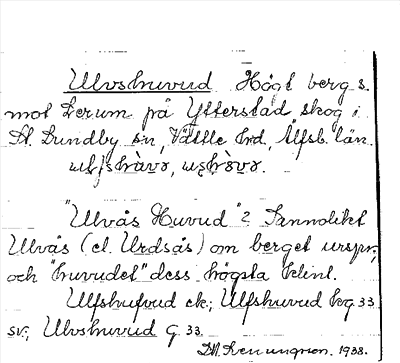 Ulvshuvud Högt berg s.
mot Lerum på Ytterstad skog i
St. Lundby sn, Vättle hd, Älfsb. län.
"Ulvås Huvud"? Sannolikt
Ulvås (el. Urdsås) om berget urspr,
och "huvudet" dess högsta klint.
Ulfshufvud ek; Ulfshuvud hg 33
sv; Ulvshuvud g 33.
1938.